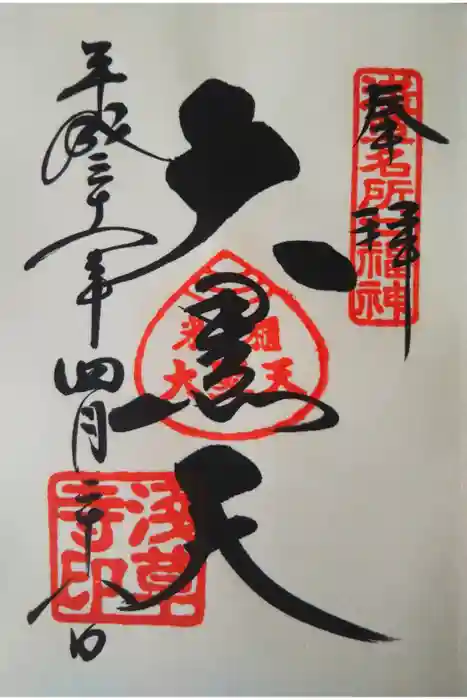 奉拝
浅草名所七福神
大黒天
米櫃
大黒天
平成三十一年四月二十八日
浅草寺印